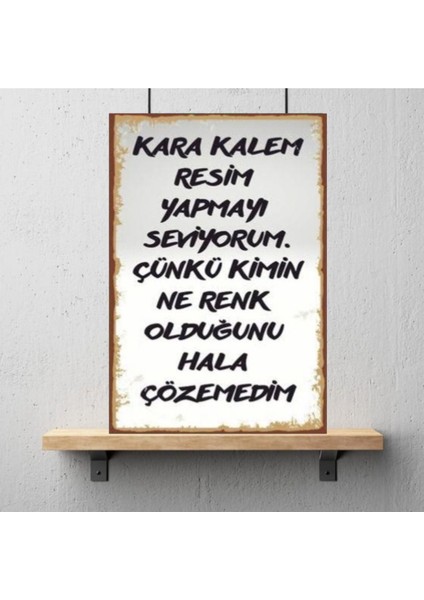 KARA KALEM
RESİM
YAPMAYI
SEVİYORUM.
ÇÜNKÜ KİMİN
NE RENK
OLDUĞUNU
HALA
ÇÖZEMEDİM